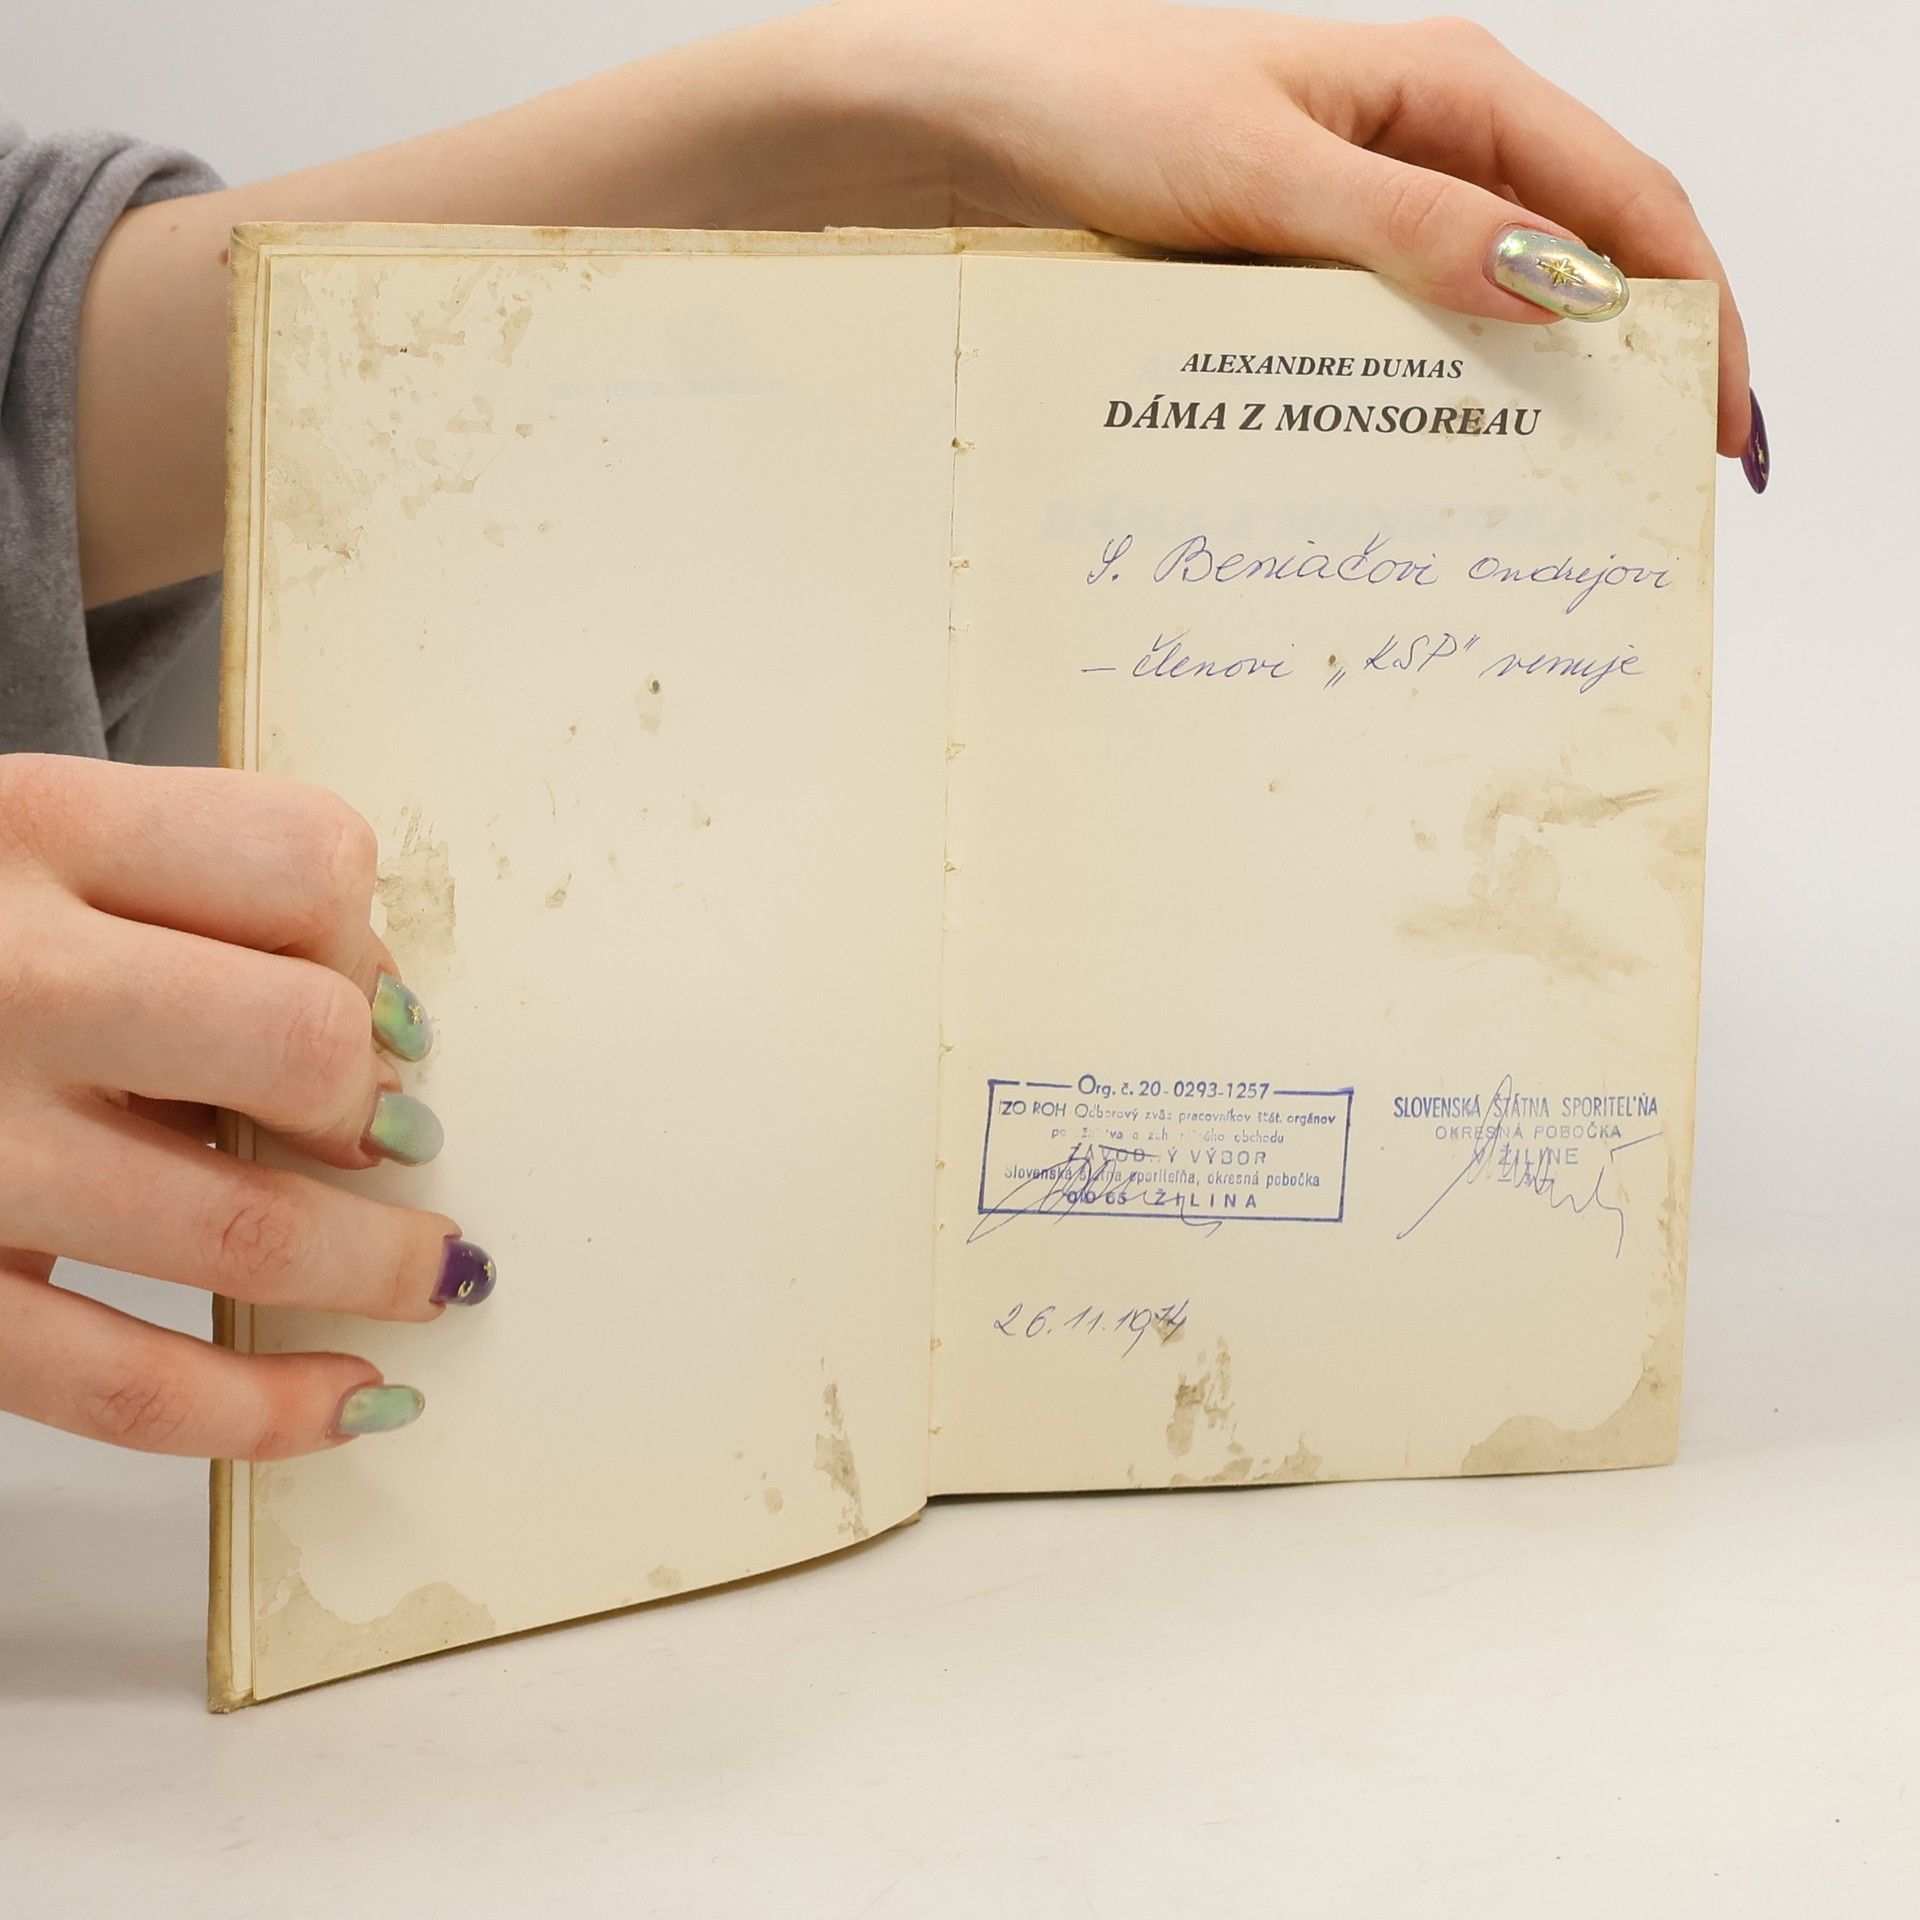 ALEXANDRE DUMAS
DÁMA Z MONSOREAU
S. Beniačovi Ondrejovi
– členovi „KSP" venuje
Org. č. 20-0293-1257
ZO ROH Odborový zväz pracovníkov štát. orgánov
obchodu
ZÁVODNÝ VÝBOR
Slovenská štátna sporiteľňa, okresná pobočka
010 65 ŽILINA
SLOVENSKÁ ŠTÁTNA SPORITEĽŇA
OKRESNÁ POBOČKA
ŽILINE
26.11.1974